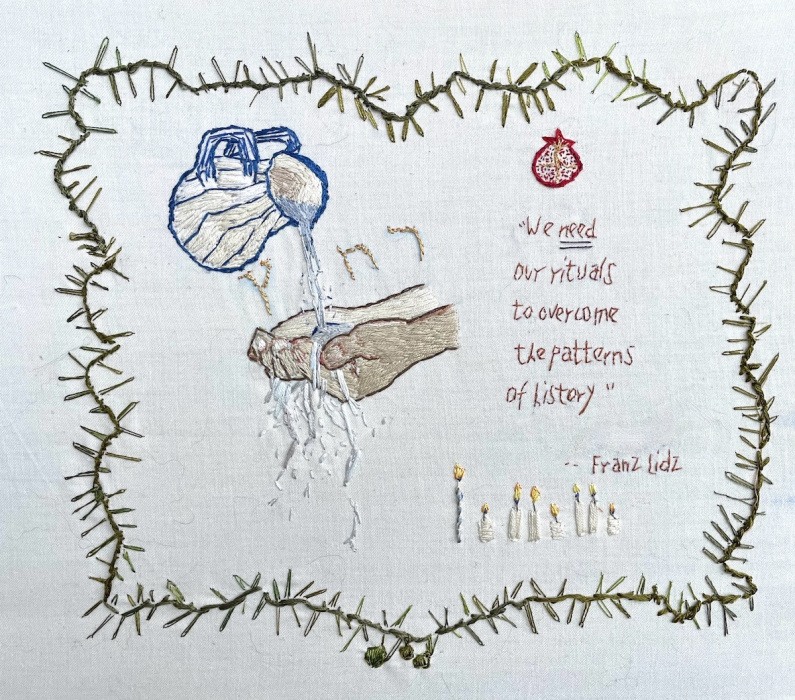 רחץ
"We need
our rituals
to overcome
the patterns
of history"
-- Franz Lidz